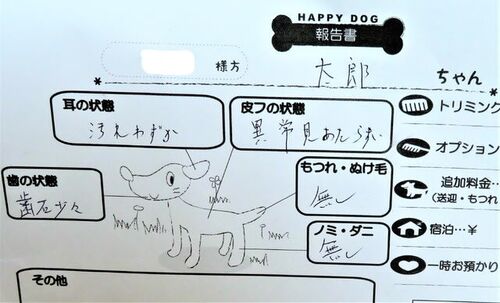 HAPPY DOG
報告書
様方
太郎 ちゃん
耳の状態
汚れわずか
皮フの状態
異常見あたらない
歯の状態
歯石少々
もつれ・ぬけ毛
無し
ノミ・ダニ
無し
その他
トリミング
オプション
追加料金…
(送迎・もつれ
宿泊…¥
一時お預かり